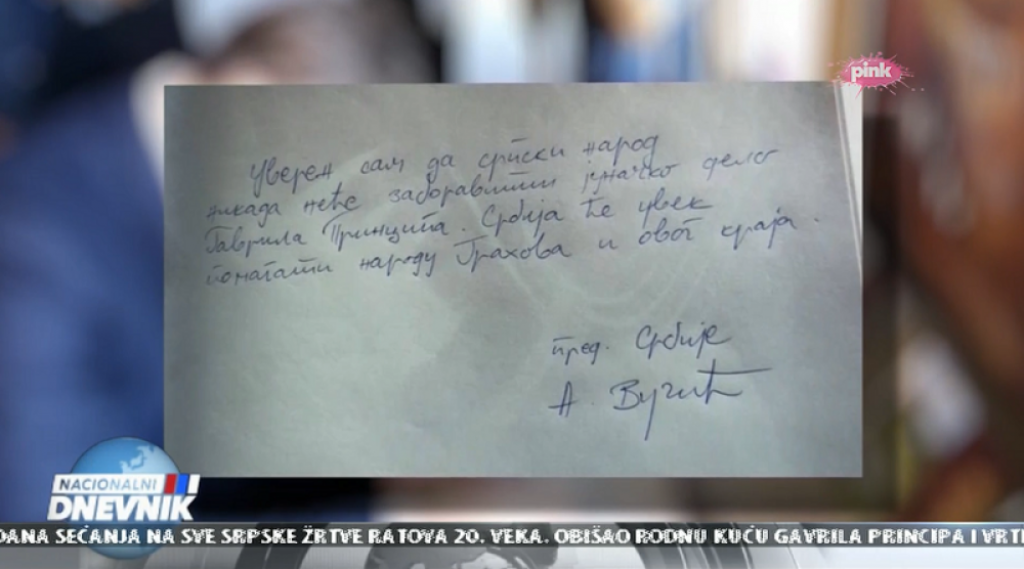 pink
Уверен сам да српски народ
никада неће заборавити јуначко дело
Гаврила Принципа. Србија ће увек
помагати народу Грахова и овог краја.
пред. Србије
А. Вучић
NACIONALNI
DNEVNIK
DANA SEĆANJA NA SVE SRPSKE ŽRTVE RATOVA 20. VEKA. OBIŠAO RODNU KUĆU GAVRILA PRINCIPA I VRTI